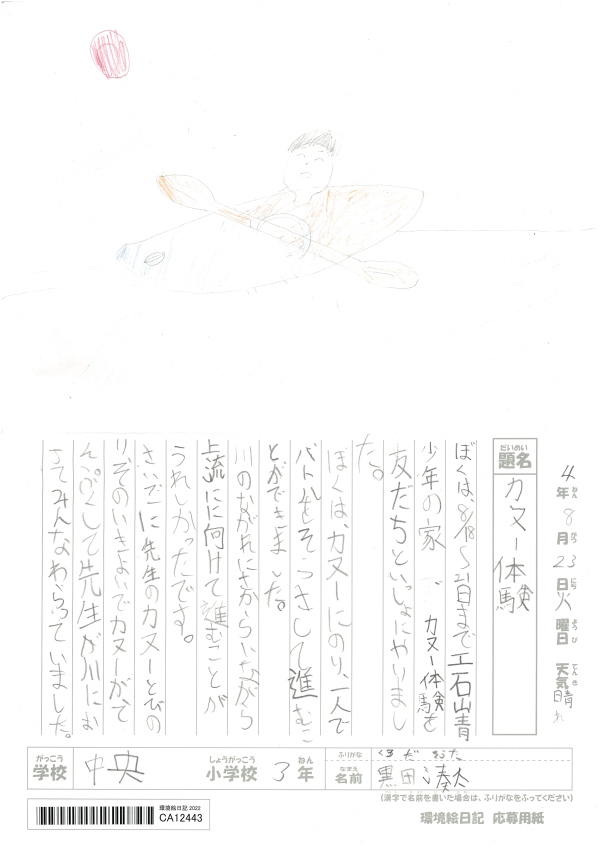 4年8月23日火曜日 天気晴れ
ねん がつ にち ようび てんき
だいめい
題名 カヌー体験
ぼくは、8/18〜21日まで工石山青
少年の家で カヌー体験を
友だちといっしょにやりまし
た。
ぼくは、カヌーにのり、一人で
パドルをそうさして進むこ
とができました。
川のながれにさからいながら
上流にに向けて進むことが
うれしかったです。
さいごに先生のカヌーとびの
り、そのいきよいでカヌーが、て
んぷくして先生が川にお
ちてみんなわらっていました。
がっこう
学校 中央
しょうがっこう ねん
小学校 3年
ふりがな くろだ そうた
なまえ
名前 黒田 湊太
(漢字で名前を書いた場合は、ふりがなをふってください)
環境絵日記 2022
CA12443
環境絵日記 応募用紙